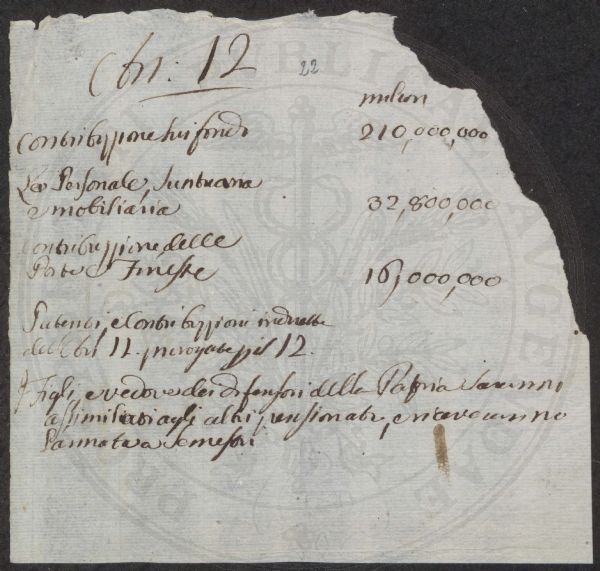 Cbr: 12
22
milion
Contribuzione sui fondi 210,000,000
La Personale, suntuaria
e mobiliaria 32,800,000
Contribuzione delle
Porte e Finestre 16,000,000
Patenti, e Contribuzioni indirette
dell' 11. prorogate pel 12.
I Figli, e vedove dei difensori della Patria saranno
assimilati agli altri pensionati, e riceveranno
l'annata a semestri